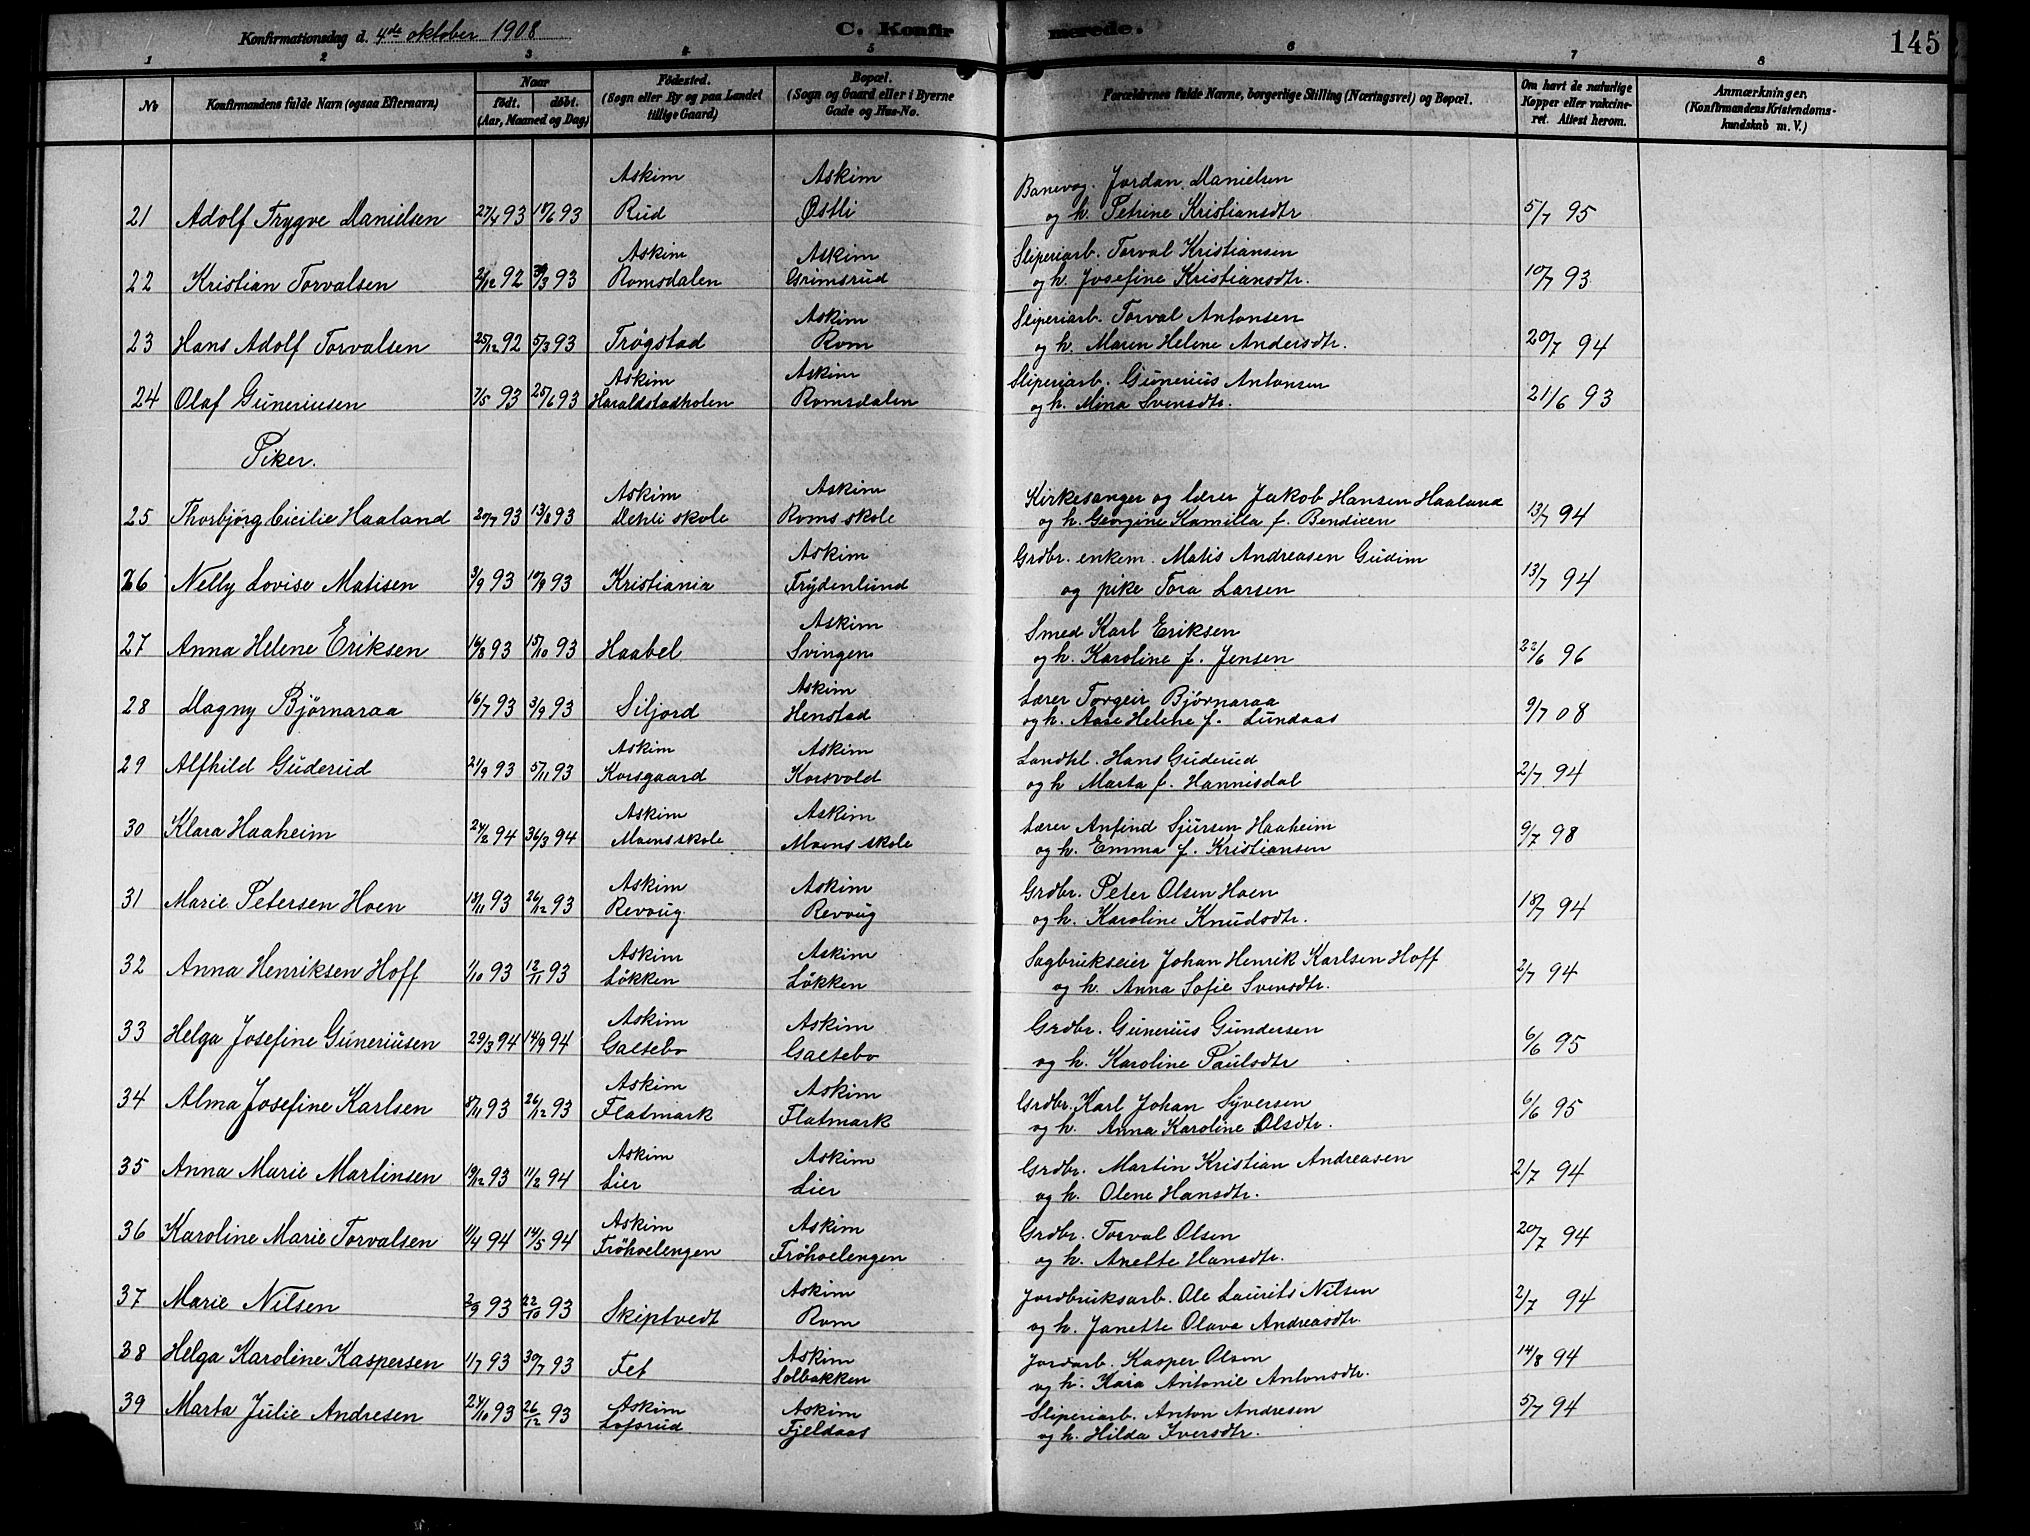 Konfirmationsdag d. 4de oktober 1908 C. Konfirmerede. 145
1 2 3 4 5 6 7 8
No
Konfirmandens fulde Navn (ogsaa Efternavn)
Naar
født. døbt.
(Aar, Maaned og Dag)
Fødested.
(Sogn eller By og paa Landet
tillige Gaard)
Bopæl.
(Sogn og Gaard eller i Byerne
Gade og Hus-No.
Forældrenes fulde Navne, borgerlige Stilling (Næringsvei) og Bopæl.
Om havt de naturlige
Kopper eller vakcine-
ret. Attest herom.
Anmærkninger.
(Konfirmandens Kristendoms-
kundskab m. V.)
Askim Askim Banevog. Jordan Danielsen
21 Adolf Trygve Danielsen 27/4 93 18/6 93 Rud Østli og h. Petrine Kristiansdtr 5/7 95
Askim Askim Sliperiarb. Torval Kristiansen
22 Kristian Torvalsen 2/12 92 30/3 93 Romsdalen Grimsrud og h. Josefine Kristiansdtr. 10/7 93
Askim Sliperiarb. Torval Antonsen
23 Hans Adolf Torvalsen 25/12 92 5/3 93 Trøgstad Rom og h. Maren Helene Andersdtr. 20/7 94
Askim Askim Sliperiarb. Gunerius Antonsen
24 Olaf Guneriusen 7/5 93 25/6 93 Haraldstadholen Romsdalen og h. Mina Svensdtr. 21/6 93
Piker.
Askim Askim Kirkesanger og lærer Jakob Hansen Haaland
25 Thorbjörg Cicilie Haaland 20/7 93 13/8 93 Dehli skole Roms skole og h. Georgine Kamilla f. Bendixen 13/7 94
Askim Grdbr. enkem. Matis Andreasen Gudim
26 Nelly Lovise Matisen 3/9 93 10/9 93 Kristiania Frydenlund og pike Tora Larsen 13/7 94
Askim Smed Karl Eriksen
27 Anna Helene Eriksen 16/8 93 15/10 93 Haabel Svingen og h. Karoline f. Jensen 22/6 96
Askim Lærer Torgeir Björnaraa
28 Dagny Björnaraa 16/7 93 3/9 93 Siljord Henstad og h. Aase Helene f. Lundaas 9/7 08
Askim Askim Landhl. Hans Guderud
29 Alfhild Guderud 21/9 93 5/11 93 Korsgaard Korsvold og h Marta f. Hannisdal 2/7 94
Askim Askim Lærer Anfind Sjursen Haaheim
30 Klara Haaheim 24/2 94 26/3 94 Moens skole Moens skole og h. Emma f. Kristiansen 9/7 98
Askim Askim Grdbr. Peter Olsen Hoen
31 Marie Petersen Hoen 18/11 93 26/12 93 Revoug Revoug og h. Karoline Knudsdtr. 18/7 94
Askim Askim Sagbrukseier Johan Henrik Karlsen Hoff
32 Anna Henriksen Hoff 1/10 93 12/11 93 Løkken Løkken og h. Anna Sofie Svensdtr. 2/7 94
Askim Askim Grdbr. Gunerius Gundersen
33 Helga Josefine Guneriusen 29/3 94 14/9 94 Galtebo Galtebo og h. Karoline Paulsdtr 6/6 95
Askim Askim Grdbr. Karl Johan Syversen
34 Alma Josefine Karlsen 8/11 93 26/12 93 Flatmark Flatmark og h. Anna Karoline Olsdtr. 6/6 95
Askim Askim Grdbr. Martin Kristian Andreasen
35 Anna Marie Martinsen 19/12 93 11/2 94 Lier Lier og h. Olene Hansdtr. 2/7 94
Askim Askim Grdbr. Torval Olsen
36 Karoline Marie Torvalsen 11/4 94 14/5 94 Fröhoelengen Fröhoelengen og h. Anette Hansdtr. 20/7 94
Askim Jordbruksarb. Ole Laurits Nilsen
37 Marie Nilsen 2/9 93 22/10 93 Skiptvedt Rom og h. Janette Olava Andreasdtr. 2/7 94
Askim Jordarb. Kasper Olsen
38 Helga Karoline Kaspersen 1/7 93 30/7 93 Fet Solbakken og h. Kaia Antonie Antonsdtr. 14/8 94
Askim Askim Sliperiarb. Anton Andresen
39 Marta Julie Andresen 24/10 93 26/12 93 Lofsrud Fjeldaas og h. Hilda Iversdtr. 5/7 94